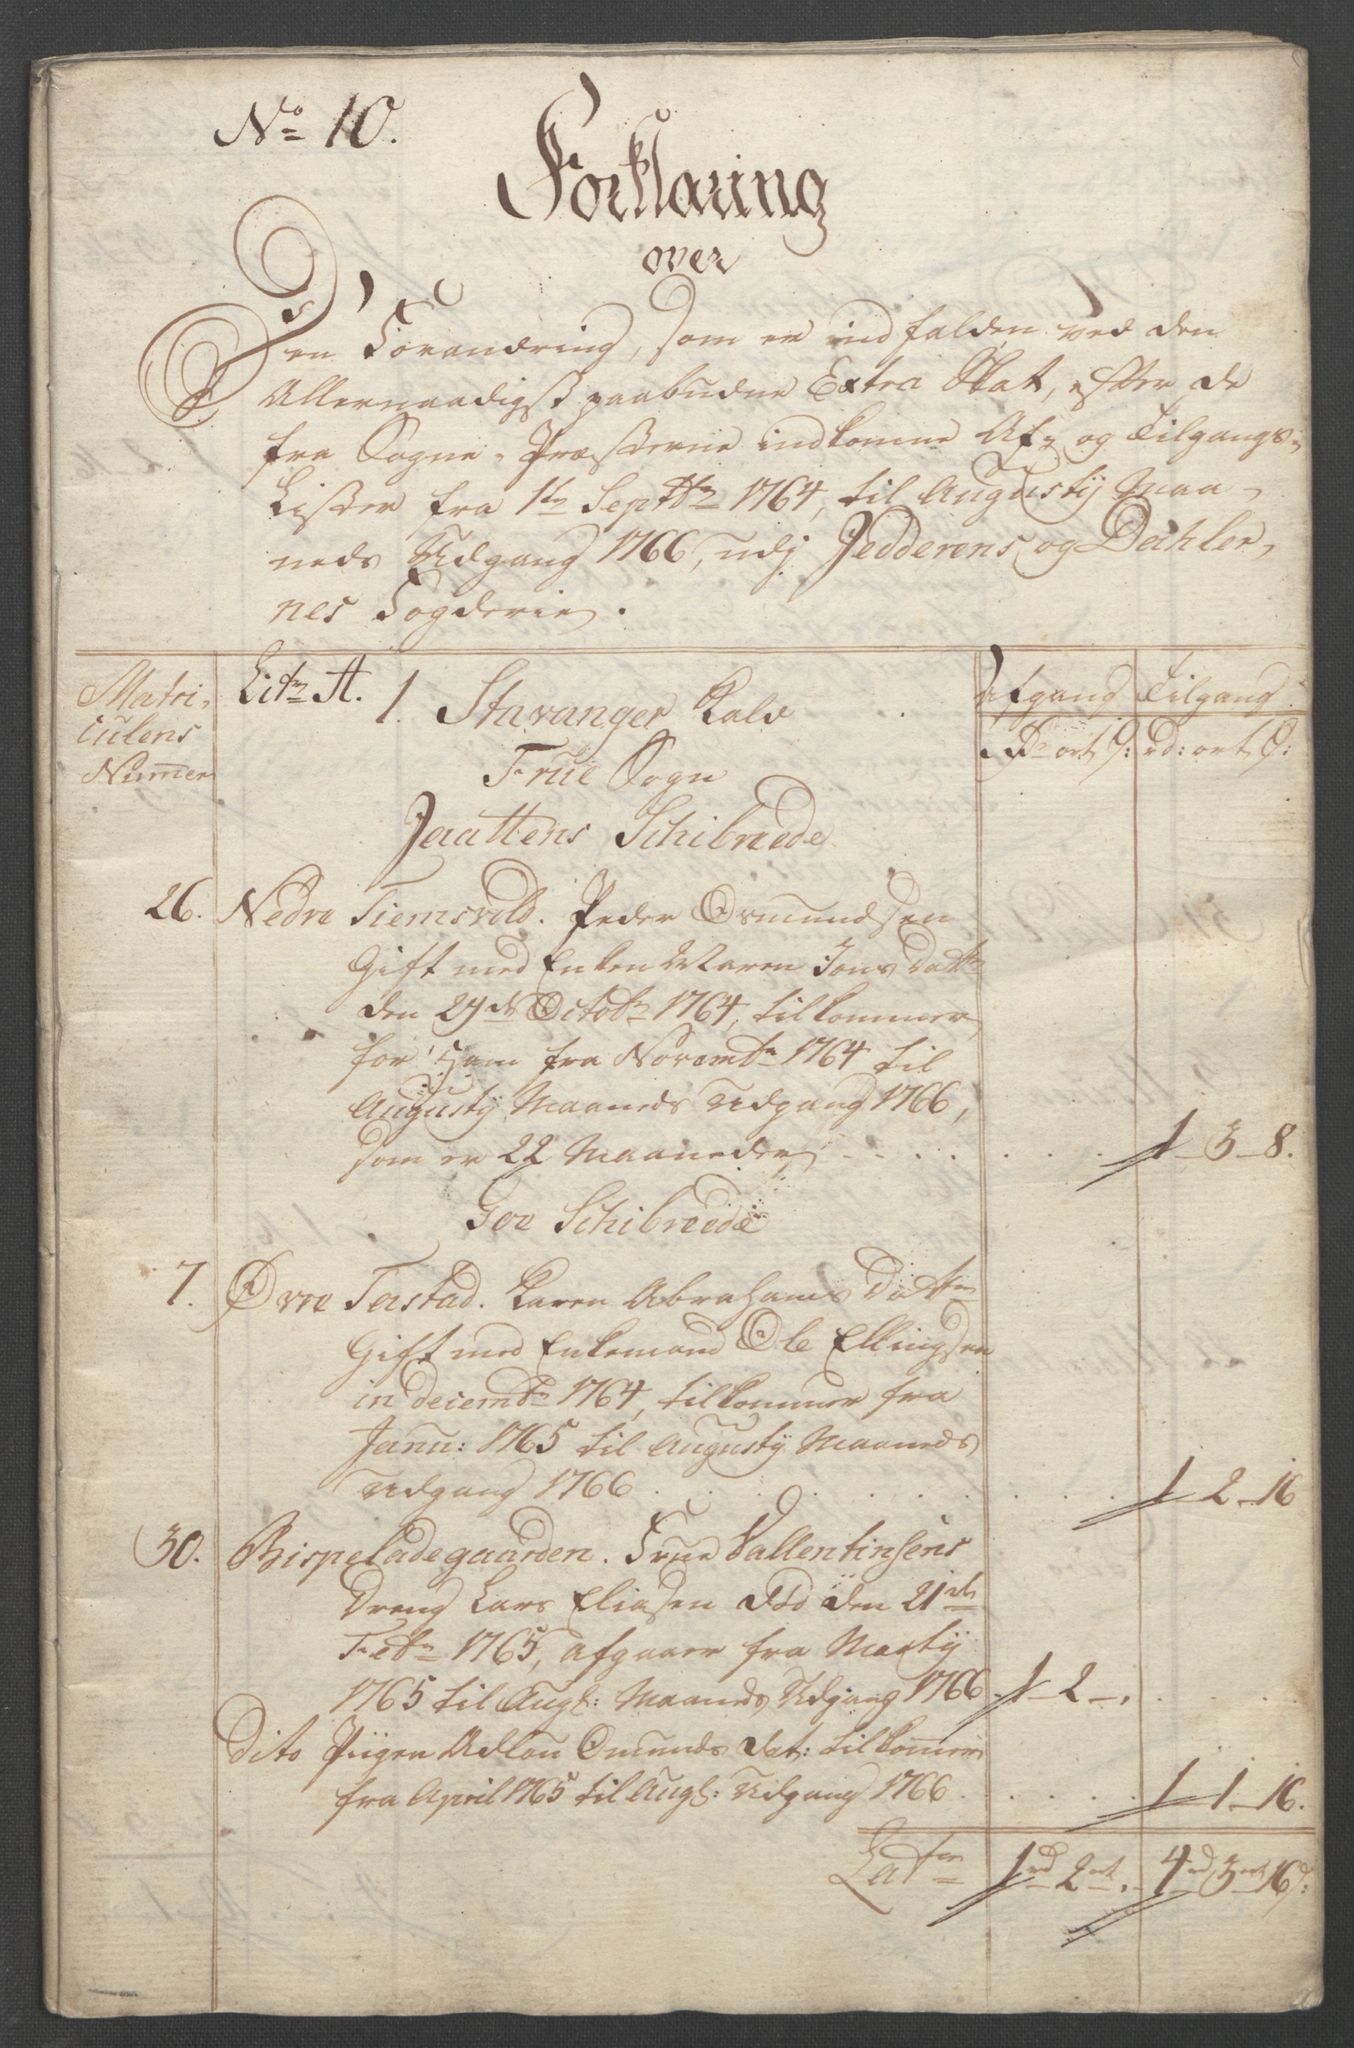 No 10.
Forklaring
over
Den Forandring, som er indfalden ved den
Allernaadigst paabudne Extra Skat, efter de
fra Sogne-Præsterne indkomne Af- og Tilgangs-
Lister fra 1te Septbr 1764, til Augusty Maa-
neds Udgang 1766, udj Jedderens og Dahler-
nes Fogderie.
Matri-
culens
Numer
Litr A. 1. Stavanger
Afgang Tilgang
Rd ort s: rd: ort s:
Frue Sogn
Jaattens Schibreede
26. Nedre Tiemsvold. Peder Osmundsen
Gift med Enken Maren Jons Dattr
den 29de Octobr 1764, tilkommer
for Ham fra Novembr 1764 til
Augusty Maaneds Udgang 1766,
som er 22 Maaneder 1-3-8.
Goe Schibreede
7. Øvre Testad. Karen Abrahams Dattr
Gift med Enkemand Ole Ellingsen
in decembr 1764, tilkommer fra
Janu: 1765 til Augusty Maaneds
Udgang 1766 1-2-16
30. Bispeladegaarden. Frue Vallentinsens
Dreng Lars Eliasen død den 21de
Febr 1765, afgaaer fra Marty
1765 til Augt: Maaneds Udgang 1766 1-2-
Dito Piigen Adlou Omunds dat: tilkommer
fra April 1765 til Augt: Udgang 1766 1-1-16.
Later 1rd 2ort - 4rd 3ort 16s: